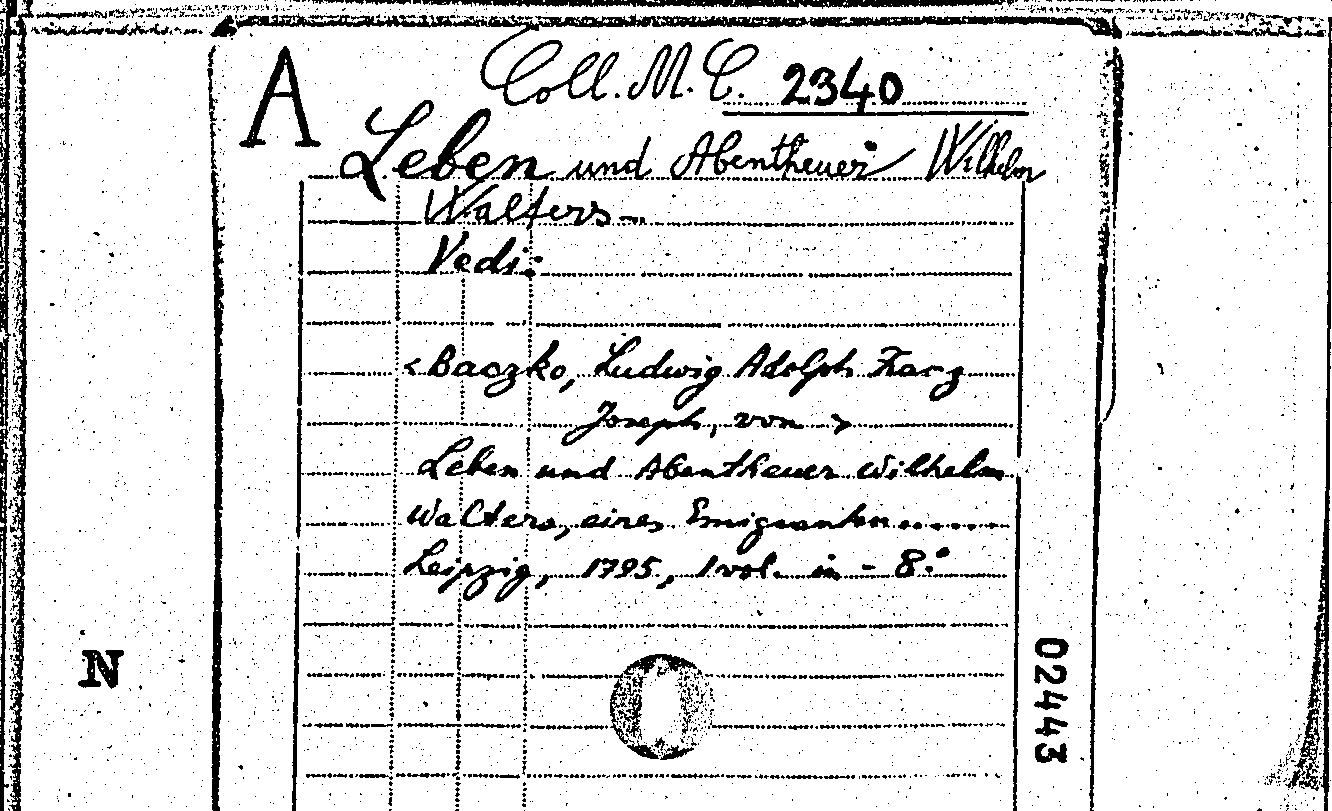 A
Coll. M. C. 2340
Leben und Abentheuer Wilhelm
Walters -
Vedi:
<Baczko, Ludwig Adolph Franz
Joseph, von >
Leben und Abentheuer Wilhelm
Walters, eines Emigranten......
Leipzig, 1795, 1 vol. in - 8.°
N
02443